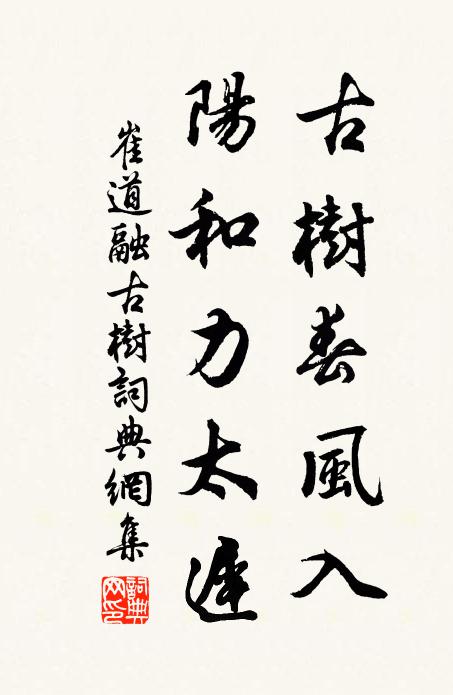 古樹春風入
陽和力太遲
崔道融古樹詞典網集
詞典網印